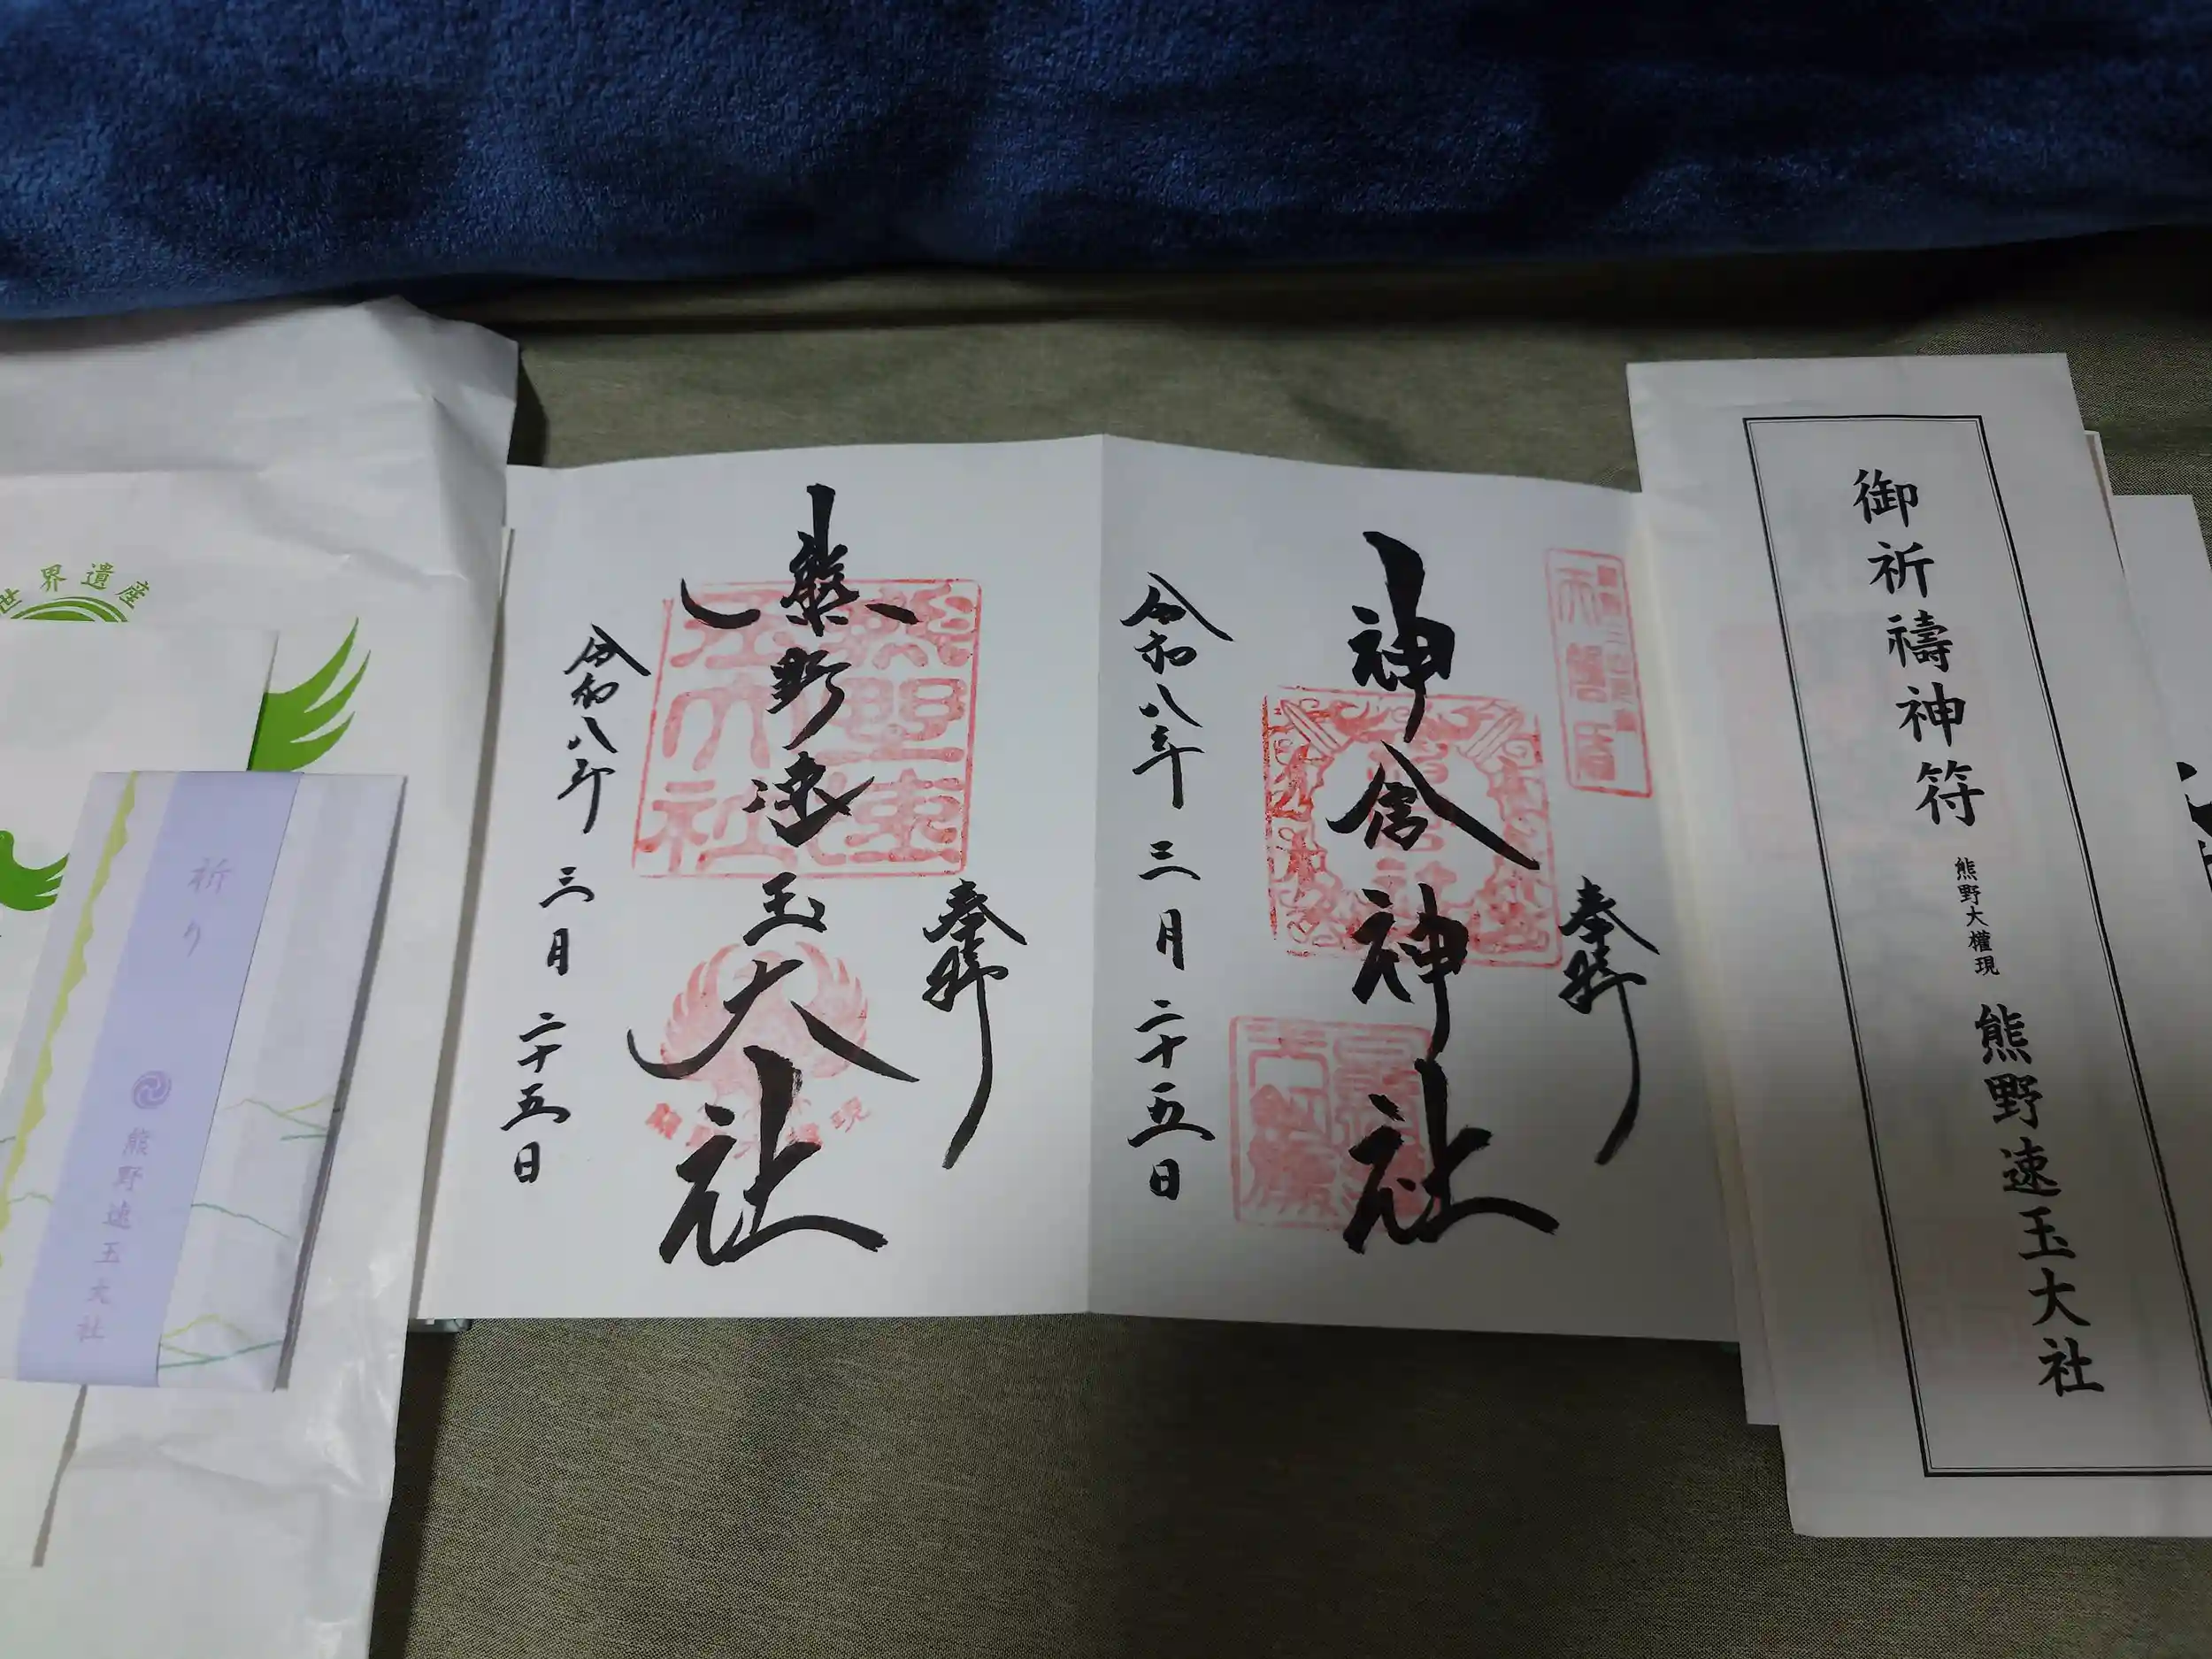 御祈禱神符 熊野大權現 熊野速玉大社
奉拝
神倉神社
令和八年三月二十五日
奉拝
熊野速玉大社
令和八年三月二十五日
世界遺産
祈り
熊野速玉大社